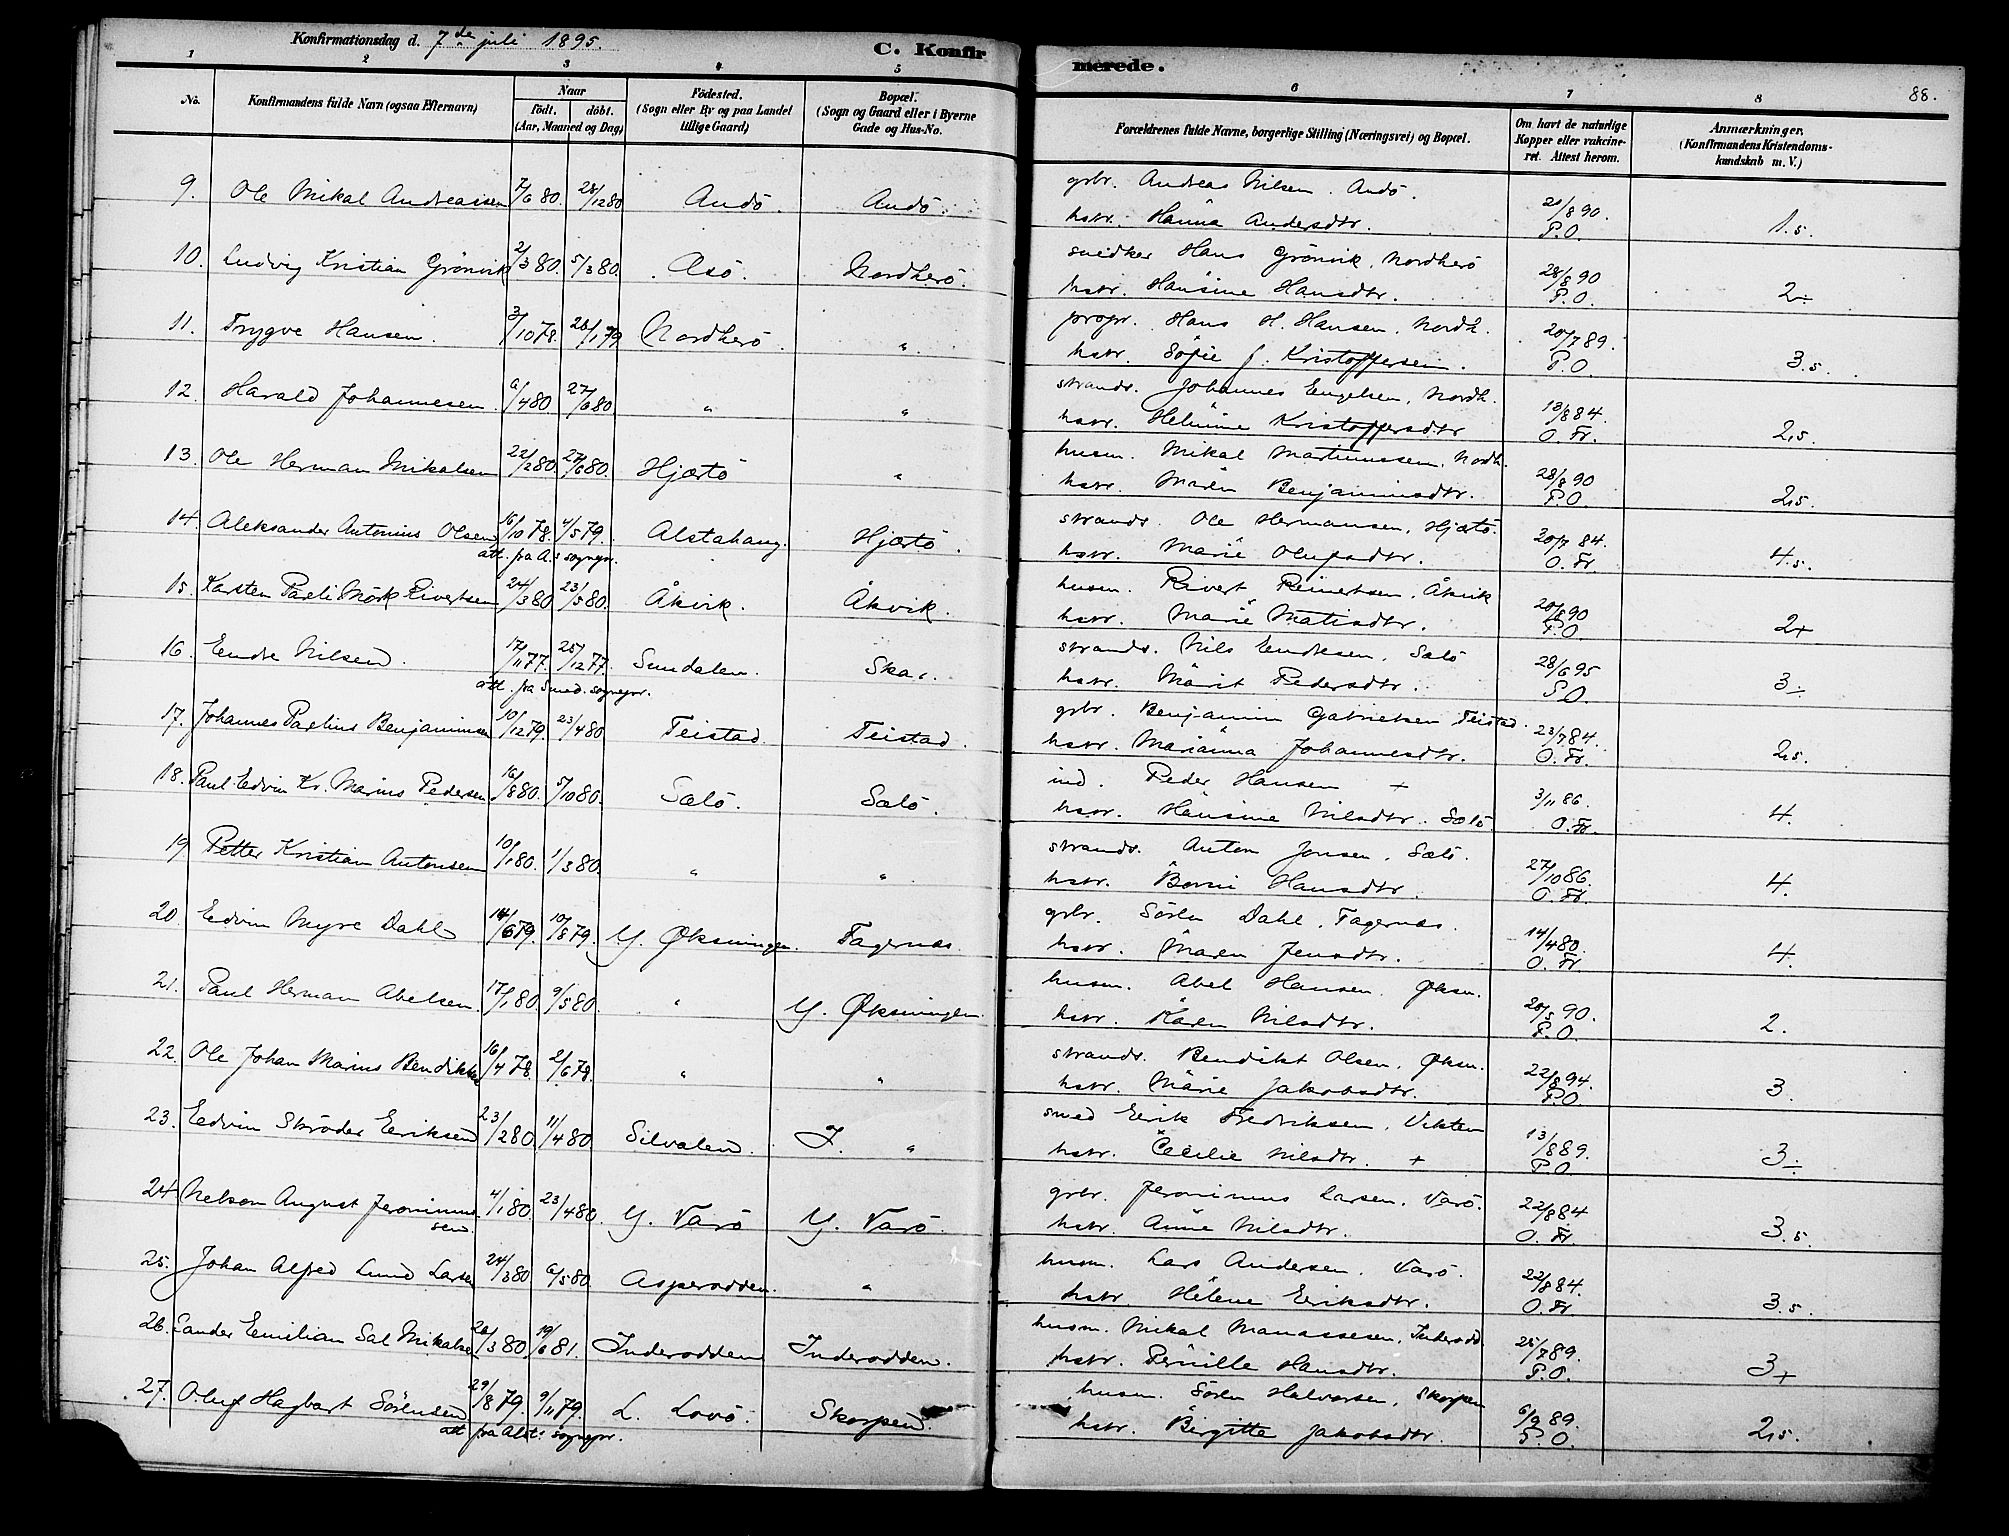 Konfirmationsdag d. 7de juli 1895.
C. Konfir
merede.
88.
1 2 3 4 5 6 7 8
No. Konfirmandens fulde Navn (ogsaa Efternavn) Naar født. døbt. (Aar, Maaned og Dag) Fødested. (Sogn eller By og paa Landet tillige Gaard) Bopæl. (Sogn og Gaard eller i Byerne Gade og Hus-No. Forældrenes fulde Navne, borgerlige Stilling (Næringsvei) og Bopæl. Om havt de naturlige Kopper eller vakcineret. Attest herom. Anmærkninger. (Konfirmandens Kristendomskundskab m. V.)
9. Ole Mikal Andreassen 7/6 80 28/12 80 Andö. Andö. gbr. Andreas Nilsen. Andö.
hstr. Hanna Andersdtr. 21/8 90. P.O. 1.5.
10. Ludvig Kristian Grönvik 2/3 80. 5/3 80. Asö. Nordherö. snedker Hans Grönvik, Nordherö
hstr. Hansine Hansdtr. 28/8 90 P.O. 2÷
11. Trygve Hansen. 3/10 78. 28/1 79 Nordherö. " propr. Hans H. Hansen, Nordh.
hstr. Sofie f. Kristoffersen. 20/7 89. P.O. 3.5.
12. Harald Johannesen 6/4 80 27/6 80 " " strands. Johannes Engelsen, Nordh.
hstr. Helmine Kristoffersdtr 13/8 84. O. Fr. 2.5.
13. Ole Herman Mikalsen 22/2 80. 27/6 80. Hjærtö " husm. Mikal Martinussen, Nordh.
hstr. Maren Benjaminsdtr. 28/8 90 P.O. 2.5.
14. Aleksander Antonius Olsen 16/10 78. 4/5 79. Alstahaug. Hjærtö. strands. Ole Hermansen, Hjærtö.
att. fra A.s sognepr.
hstr. Marie Olufsdtr. 20/7 84. O. Fr. 4.5.
15. Karsten Pareli Mörk Rivertsen 24/3 80 23/5 80. Åkvik. Åkvik. husm. Rivert Reinertsen, Åkvik
hstr. Marie Matisdtr. 20/8 90 P.O. 2+
16. Endre Nilsen. 17/11 77. 25/12 77. Sundalen. Ska. strands. Nils Endresen, Salö
att. fra Sund. sognepr.
hstr. Marit Pedersdtr. 28/6 95 P.O. 3÷
17. Johannes Parelius Benjaminsen 10/12 79. 23/4 80 Teistad. Teistad. gbr. Benjamin Gabrielsen Teistad.
hstr. Marianna Johannesdtr. 23/7 84. O. Fr. 2.5.
18. Paul Edvin Kr. Marius Pedersen 16/8 80. 5/10 80. Salö. Salö. ind. Peder Hansen +
hstr. Hansine Nilsdtr. Salö 3/11 86. O. Fr. 4.
19 Petter Kristian Antonsen 10/1 80. 1/3 80. " " strands. Anton Jonsen, Salö.
hstr. Hansdtr. 27/10 86. O. Fr. 4.
20. Edvin Myre Dahl 14/6 79. 10/8 79. Y. Øksningen. Tagernas. gbr. Sören Dahl, Tagernas.
hstr. Maren Jensdtr. 14/4 80. O. Fr 4.
21. Paul Herman Abelsen. 17/1 80. 9/5 80. " Y. Øksningen husm. Abel Hansen. Øksn.
hstr. Karen Nilsdtr. 20/5 90. P.O. 2.
22. Ole Johan Marius Bendiktsen 16/4 78. 2/6 78. " " strands. Bendikt Olsen, Øksn.
hstr. Marie Jakobsdtr. 22/8 94. P.O. 3.
23. Edvin Schröder Eriksen 23/2 80. 11/4 80. Silvalen. I. " smed Erik Fredriksen, Vikten
hstr. Cecilie Nilsdtr. + 13/8 89. P.O. 3÷
24 Nelson August Jeronimussen 4/1 80. 23/4 80. Y. Varö Y. Varö. gbr. Jeronimus Larsen, Varö.
hstr. Anne Nilsdtr. 22/8 84 O. Fr. 3.5.
25. Johan Alfred Lund Larsen 24/3 80 6/5 80. Asperodden. " husm. Lars Andersen. Varö.
hstr. Helene Eriksdtr. 22/8 84. O. Fr 3.5.
26. Sander Emilian Sal Mikalsen 26/3 80. 19/6 81. Inderodden Inderodden. husm. Mikal Manassesen, Inderodd
hstr. Pernille Hansdtr. 25/7 89. P.O. 3+
27. Oluf Hagbart Sörensen 29/8 79. 9/11 79. L. Lovö. Skorpen. husm. Sören Halvorsen, Skorpen
att. fra Alst. sognepr.
hstr. Birgitte Jakobsdtr. 6/9 89. P.O. 2.5.